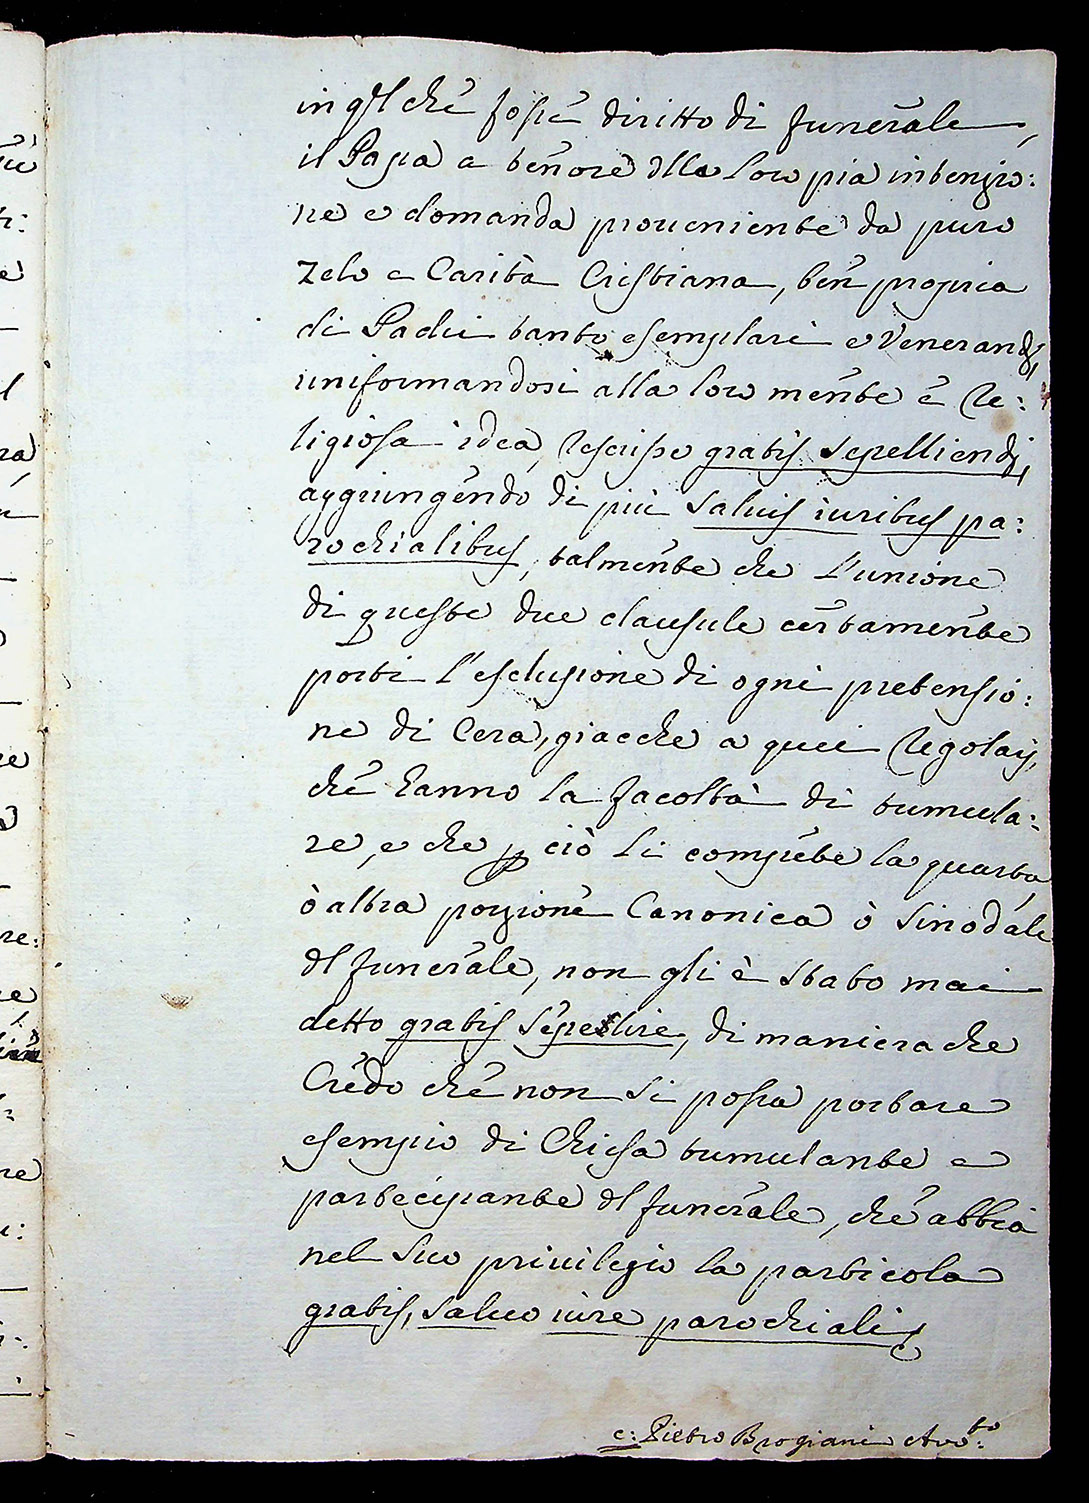 in qsl che fosse diritto di funerale,
il Papa a tenore dlla loro pia intenzio:
ne e domanda proveniente da puro
Zelo e Carità Cristiana, ben propria
di Padri tanto esemplari e Venerandi,
uniformandosi alla loro mente e Re:
ligiosa idea, rescrisse gratis sepelliendi,
aggiungendo di più salvis iuribus pa:
rochialibus, talmente che l'unione
di queste due clausule certamente
porti l'esclusione di ogni pretensio:
ne di Cera, giacche a quei Regolari,
che hanno la facoltà di tumula:
re, e che p ciò li compete la quarta
ò altra porzione Canonica ò Sinodale
dl funerale, non gli è stato mai
detto gratis sepelire, di maniera che
Credo che non si possa portare
esempio di Chiesa tumulante e
partecipante dl funerale, che abbia
nel suo privilegio la particola
gratis, salvo iure parochiali
c: Pietro Brogiani Avo:to